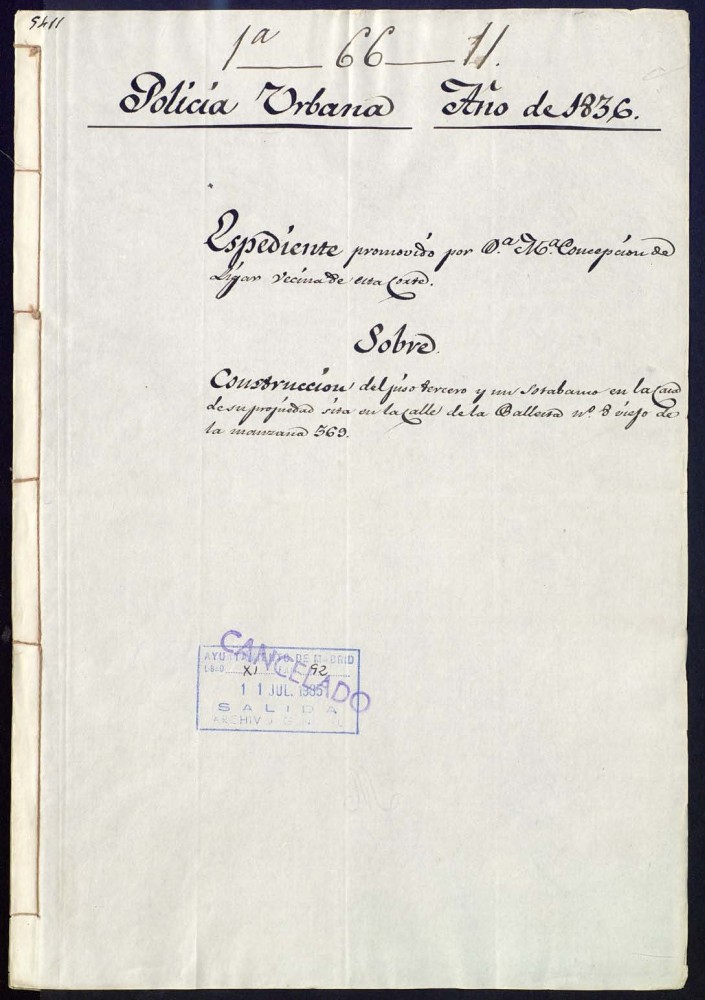 5411
1ª 66 11.
Policia Urbana Año de 1836.
Espediente promovido por D.ª M.ª Concepcion de
vecina de esta Corte.
Sobre
Construccion del piso tercero y un sotabanco en la Casa
de su propiedad sita en la Calle de la Ballesta nº. 8 viejo de
la manzana 369.
CANCELADO
AYUNTAMIENTO DE MADRID
XI 92
11 JUL.
SALIDA
ARCHIVO